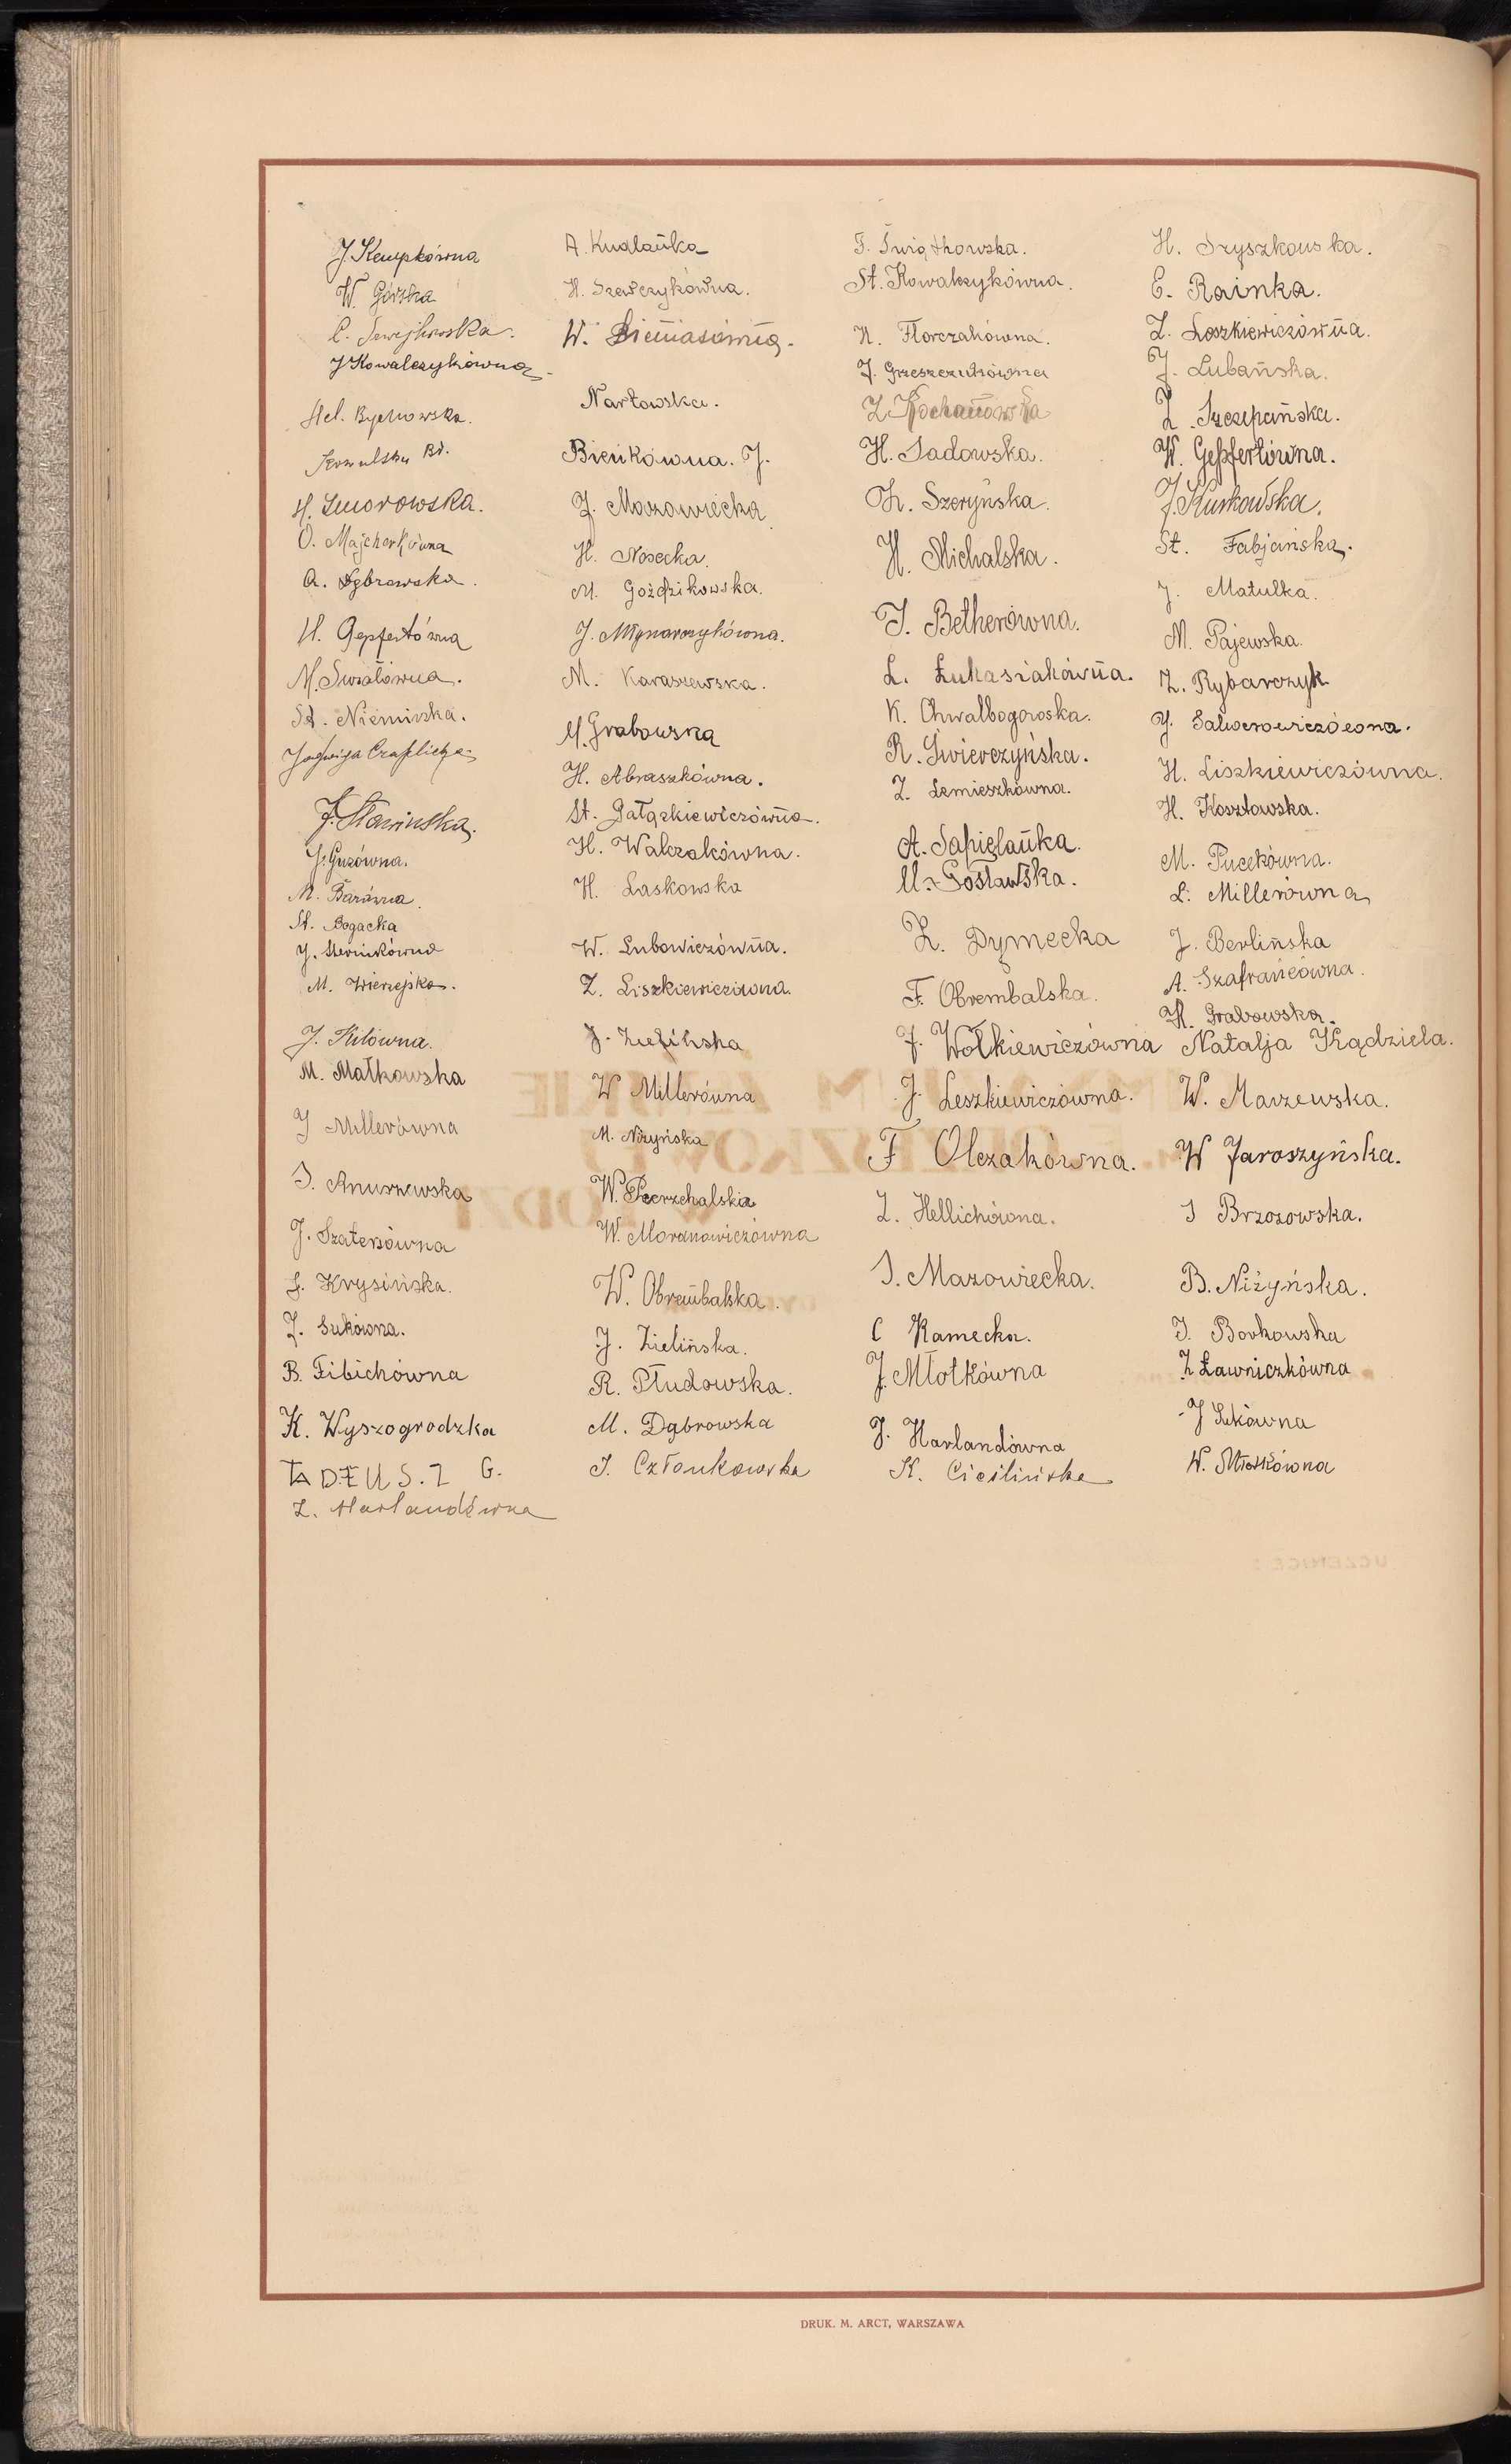 J. Kempkówna
W. Górska
J. Kowalczykówna
Hel. Bychowska.
H. Smorowska.
O. Majcherkówna
A. Dąbrowska.
H. Gepfertówna
M. Swiałówna.
St. Niemirska.
Jadwiga Czaplicka
J. Sławinska.
J. Guzówna.
M. Barówna.
St. Bogacka
J. Słowikówna
M. Wierzejska.
J. Kilówna.
M. Małkowska
J Millerówna
I. Anuszewska
J. Szaterówna
L. Krysińska.
J. Sukówna.
B. Fibichówna
K. Wyszogrodzka
TADEUS.Z G.
Z. Harlandówna
A. Kudlańka
H. Szewczykówna.
W.
Nartowska.
Bieńkówna. J.
J. Mazowiecka
H. Nosecka.
M. Goździkowska.
J. Młynarczykówna.
M. Karaszewska.
M. Grabowska
H. Abraszkówna.
St. Gałązkiewiczówna.
H. Walczakówna.
H. Laskowska
W. Lubowiczówna.
Z. Liszkiewiczówna.
J. Zielińska
W Millerówna
M. Niżyńska
W. Pierzchalska
W. Moranowiczówna
W. Obrembalska.
J. Zielińska.
R. Płudowska.
M. Dąbrowska
I. Członkowska
F. Świątkowska.
St. Kowalczykówna.
H. Florczakówna.
J. Grzeszczukówna
Z. Kochanowska
H. Sadowska.
Ch. Szeryńska.
H. Michalska.
I. Betherówna.
L. Łukasiakówna.
K. Chwalbogowska.
R. Świerczyńska.
Z. Lemieszkówna.
A. Sapielańka.
M. Gosławska.
Z. Dymecka
F. Obrembalska.
J. Wołkiewiczówna
J. Leszkiewiczówna.
F Olczakówna.
Z. Hellichówna.
I. Mazowiecka.
C Kamecka.
J. Młotkówna
J. Harlandówna
K. Cieślińska
H. Tryszkowska.
E. Rainka.
Z. Leszkiewiczówna.
J. Lubańska.
Z. Szczepańska.
W. Gepfertówna.
J. Kurkowska.
St. Fabjańska.
J. Matulka.
M. Pajewska.
Z. Rybarczyk
J. Salwerowiczówna.
H. Liszkiewiczówna.
H. Kosztowska.
M. Pucekówna.
L. Millerówna
J. Berlińska
A. Szafrańcówna.
H. Grabowska.
Natalja Kądziela.
W. Marzewska.
W Jaroszyńska.
I Brzozowska.
B. Niżyńska.
I. Borkowska
Z Ławniczkówna
J Sukówna
W. Młotkówna
DRUK. M. ARCT, WARSZAWA